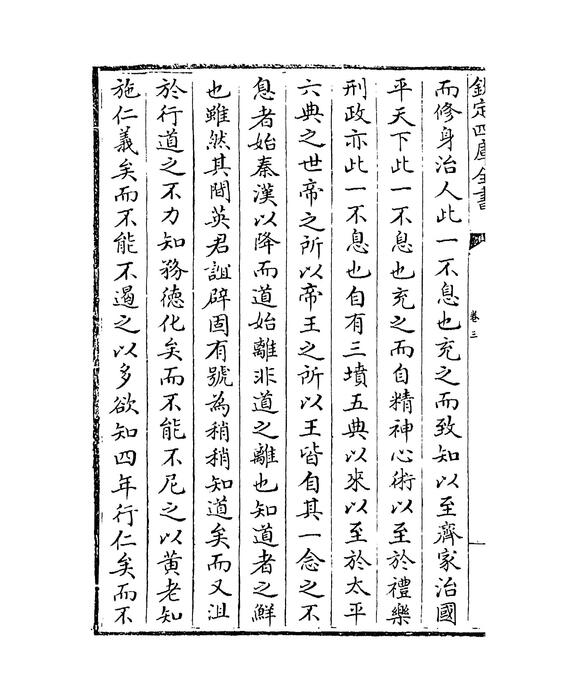 欽定四庫全書
卷三
而修身治人此一不息也充之而致知以至齊家治國
平天下此一不息也充之而自精神心術以至於禮樂
刑政亦此一不息也自有三墳五典以來以至於太平
六典之世帝之所以帝王之所以王皆自其一念之不
息者始秦漢以降而道始離非道之離也知道者之鮮
也雖然其間英君誼辟固有號為稍稍知道矣而又沮
於行道之不力知務德化矣而不能不尼之以黄老知
施仁義矣而不能不遏之以多欲知四年行仁矣而不